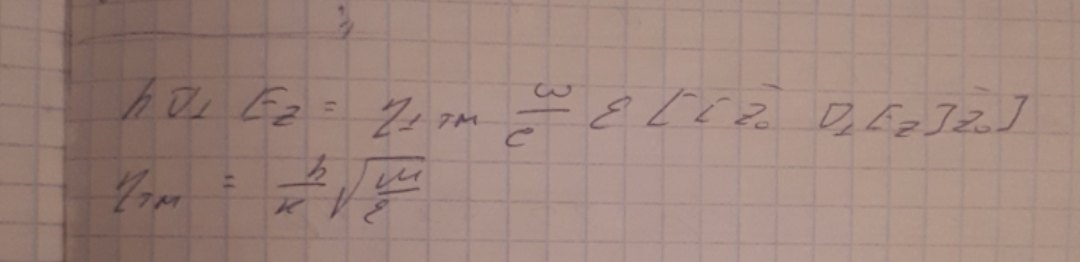 h ∇⊥ E_z = η⊥ TM ω/c ε [[z̄₀ ∇⊥E_z] z̄₀]
η_TM = h/k √(μ/ε)